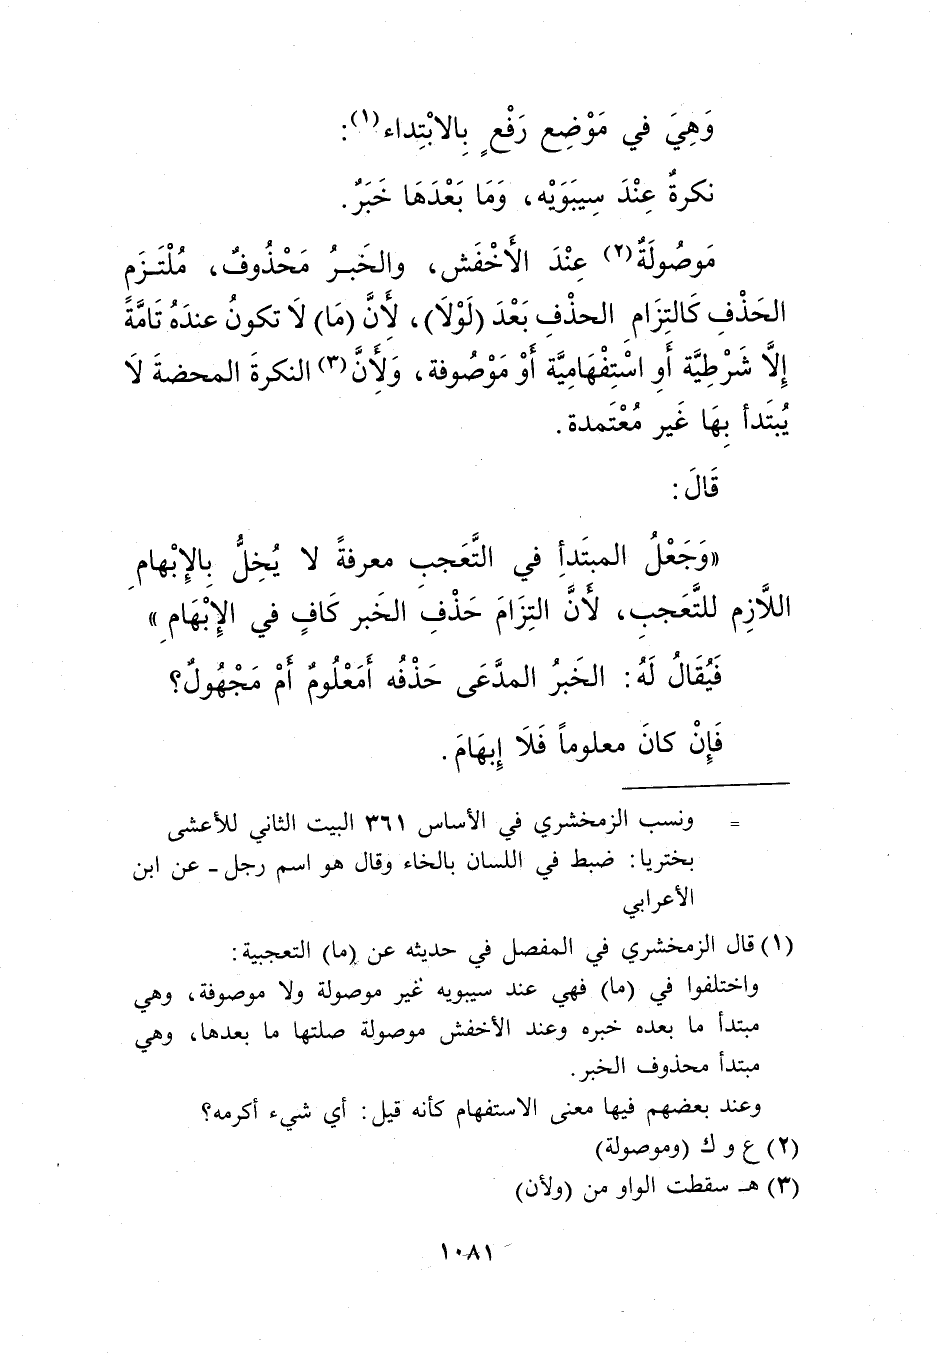 وَهِيَ في مَوْضِع رَفْعٍ بِالابْتِداء(١):
نكرةٌ عِنْدَ سِيبَوَيْه، وَمَا بَعْدَهَا خَبَرٌ.
مَوصُولَةٌ(٢) عِنْدَ الأَخْفَش، والخَبرُ مَحْذُوفٌ، مُلْتَزَم
الحَذْفِ كَالتِزَامِ الحذْفِ بَعْدَ (لَوْلَا)، لِأَنَّ (مَا) لَا تكونُ عندَهُ تَامَّةً
إِلَّا شَرْطِيَّة أَوِ اسْتِفْهَامِيَّة أَوْ مَوْصُوفة، وَلِأَنَّ(٣) النكرةَ المحضةَ لَا
يُبتَدأ بِهَا غَير مُعْتَمدة.
قَالَ:
«وَجَعْلُ المبتَدأِ في التَّعَجبِ معرفةً لا يُخِلُّ بِالإِبْهامِ
اللَّازِم للتَّعَجبِ، لأَنَّ التِزَامَ حَذْفِ الخَبر كَافٍ في الإِبْهَامِ»
فَيُقَالُ لَهُ: الخَبرُ المدَّعَى حَذْفُه أَمَعْلُومٌ أَمْ مَجْهُولٌ؟
فَإِنْ كانَ معلوماً فَلَا إِبهَامَ.
= ونسب الزمخشري في الأساس ٣٦١ البيت الثاني للأعشى
بختريا: ضبط في اللسان بالخاء وقال هو اسم رجل - عن ابن
الأعرابي
(١) قال الزمخشري في المفصل في حديثه عن (ما) التعجبية:
واختلفوا في (ما) فهي عند سيبويه غير موصولة ولا موصوفة، وهي
مبتدأ ما بعده خبره وعند الأخفش موصولة صلتها ما بعدها، وهي
مبتدأ محذوف الخبر.
وعند بعضهم فيها معنى الاستفهام كأنه قيل: أي شيء أكرمه؟
(٢) ع و ك (وموصولة)
(٣) هـ سقطت الواو من (ولأن)
١٠٨١